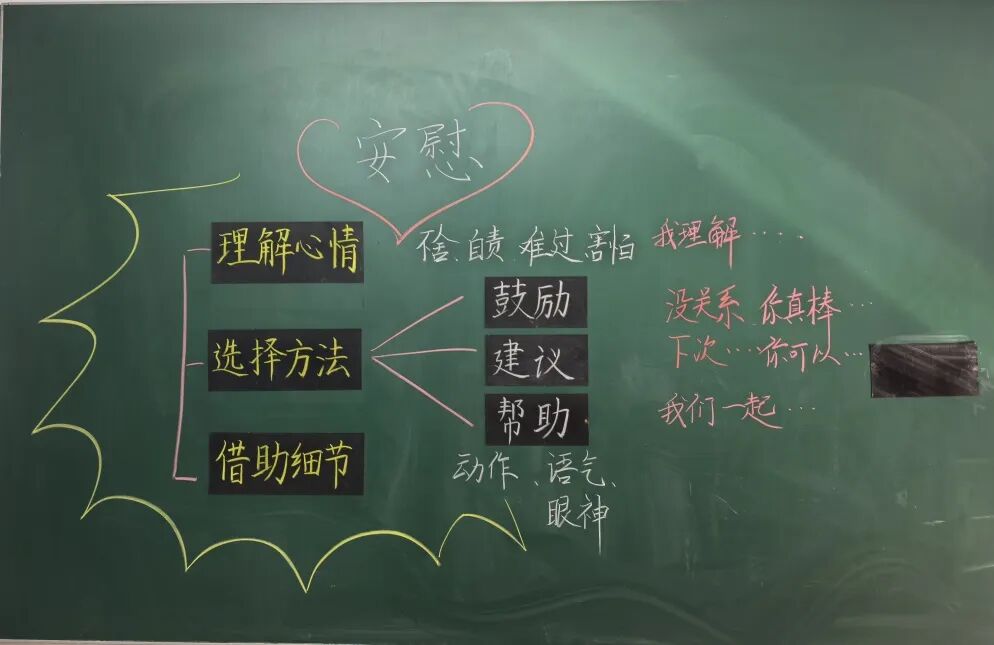 安慰
理解心情 自责、难过、害怕 我理解····
鼓励 没关系 你真棒···
选择方法 建议 下次····你可以···
帮助 我们一起···
借助细节 动作、语气、
眼神